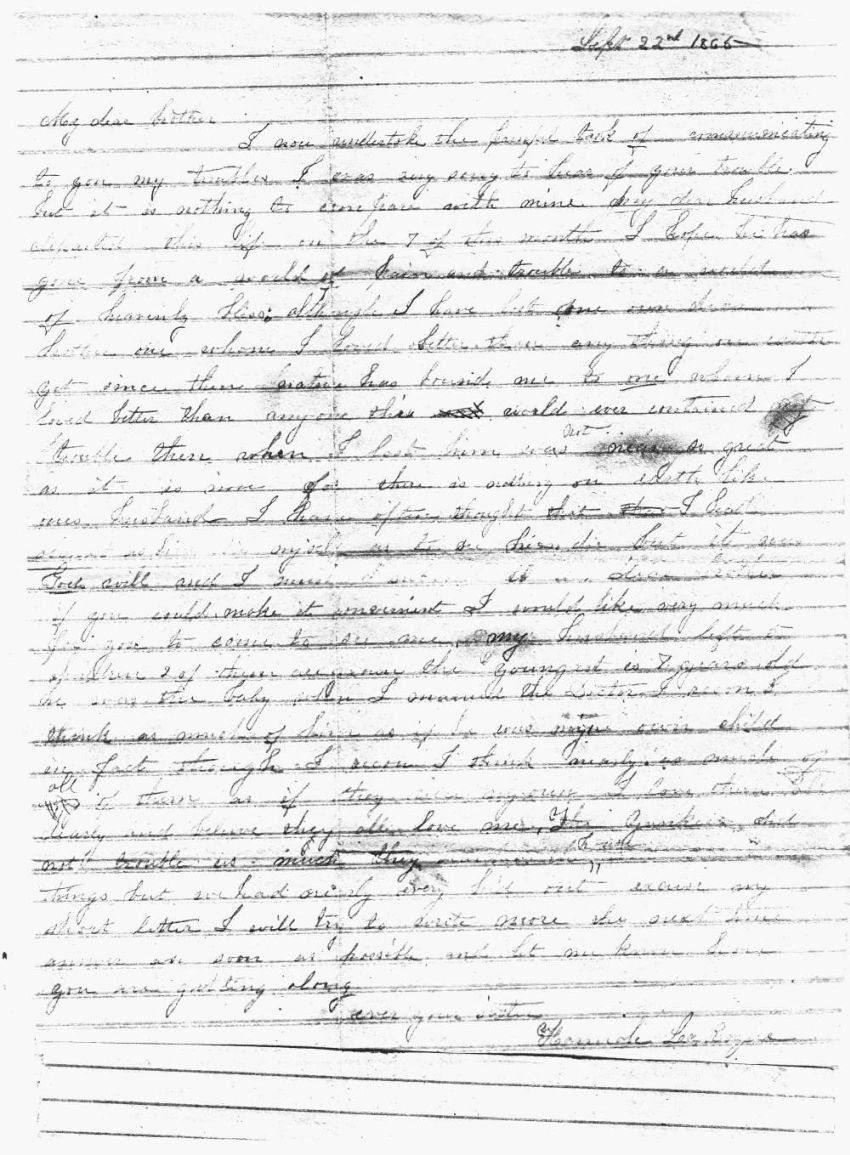 Sept 22nd 1865
My dear brother
I now undertake the painful task of communicating
to you my troubles I was very sorry to hear of your trouble
but it is nothing to compare with mine my dear husband
departed this life on the 7 of this month I hope he has
gone from a world of pain and trouble to a world
of heavenly bliss, although I have lost one own dear
brother one whom I loved better than any thing on earth
yet since then nature has bound me to one whom I
loved better than anyone this world ever contained
trouble then when I lost him was not so great
as it is now for there is nothing on earth like
ones husband I have often thought that I had
myself as to see him die but it was
Gods will and I must
if you could make it convenient I would like very much
for you to come to see me, my husband left
children 2 of them are grown the youngest is 7 years old
he was the baby when I married the Doctor I recon I
think as much of him as if he was my own child
in fact though I recon I think nearly as much of
all of them as if they were my own I love them all
dearly and believe they all love me, The Yankees did
not trouble us much they
things but we had nearly every hid out excuse my
short letter I will try to write more the next time
answer as soon as possible and let me know how
you are getting along
ever your sister